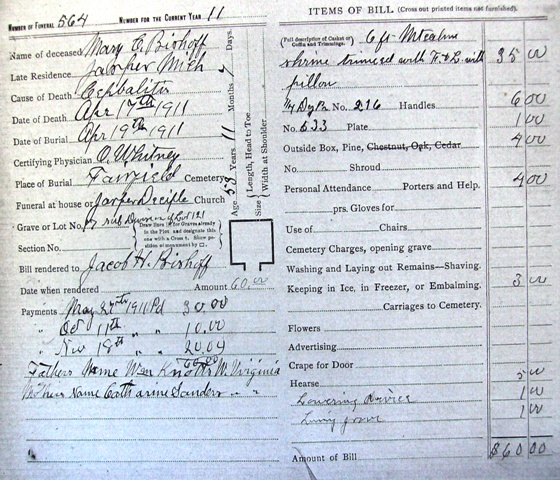 NUMBER OF FUNERAL 564 NUMBER FOR THE CURRENT YEAR 11
Name of deceased Mary E Bishoff
Late Residence Jasper Mich
Cause of Death
Date of Death Apr 17th 1911
Date of Burial Apr 19th 1911
Certifying Physician O. Whitney
Place of Burial Fairfield Cemetery
Funeral at house or Jasper Deciple Church
Grave or Lot No. 97 sub Division of Lot 121
Section No.
Draw Here for Graves already in the Plot and designate this one with a Cross †. Show position of monument by □.
Bill rendered to Jacob H. Bishoff
Date when rendered Amount 60.00
Payments May 27th 1911 Pd 30.00
" Oct 11th " " 10.00
" Nov 18th " " 20.04
60.00
Fathers Name Wm Knotts W. Virginia
Mothers Name Catharine Sanders " "
Age 53 Years 11 Months 7 Days.
Size Length, Head to Toe
Width at Shoulder
ITEMS OF BILL (Cross out printed items not furnished).
(Full description of Casket or Coffin and Trimmings. 6 ft
trimmed with 35 00
pillow
No. 216 Handles 6 00
No. 633 Plate 1 00
Outside Box, Pine, Chestnut, Oak, Cedar 4 00
No. Shroud
Personal Attendance Porters and Help. 4 00
prs. Gloves for
Use of Chairs
Cemetery Charges, opening grave
Washing and Laying out Remains—Shaving.
Keeping in Ice, in Freezer, or Embalming. 3 00
Carriages to Cemetery.
Flowers
Advertising
Crape for Door
Hearse 5 00
Lowering device 1 00
Lining grave 1 00
Amount of Bill $60 00